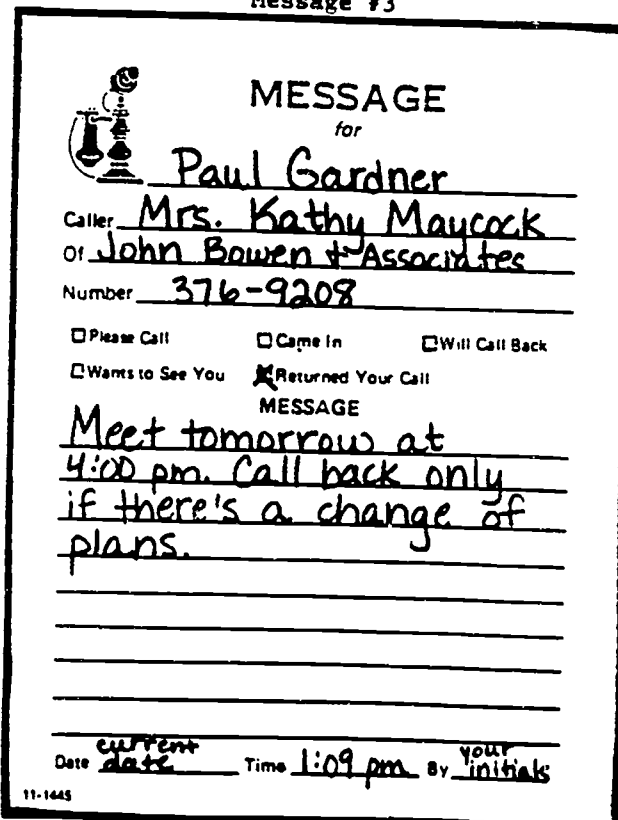 Message #3
MESSAGE
for
Paul Gardner
Caller Mrs. Kathy Maycock
Of John Bowen & Associates
Number 376-9208
Please Call Came In Will Call Back
Wants to See You Returned Your Call
MESSAGE
Meet tomorrow at
4:00 pm. Call back only
if there's a change of
plans.
Date current date Time 1:09 pm By your initials
11-1445